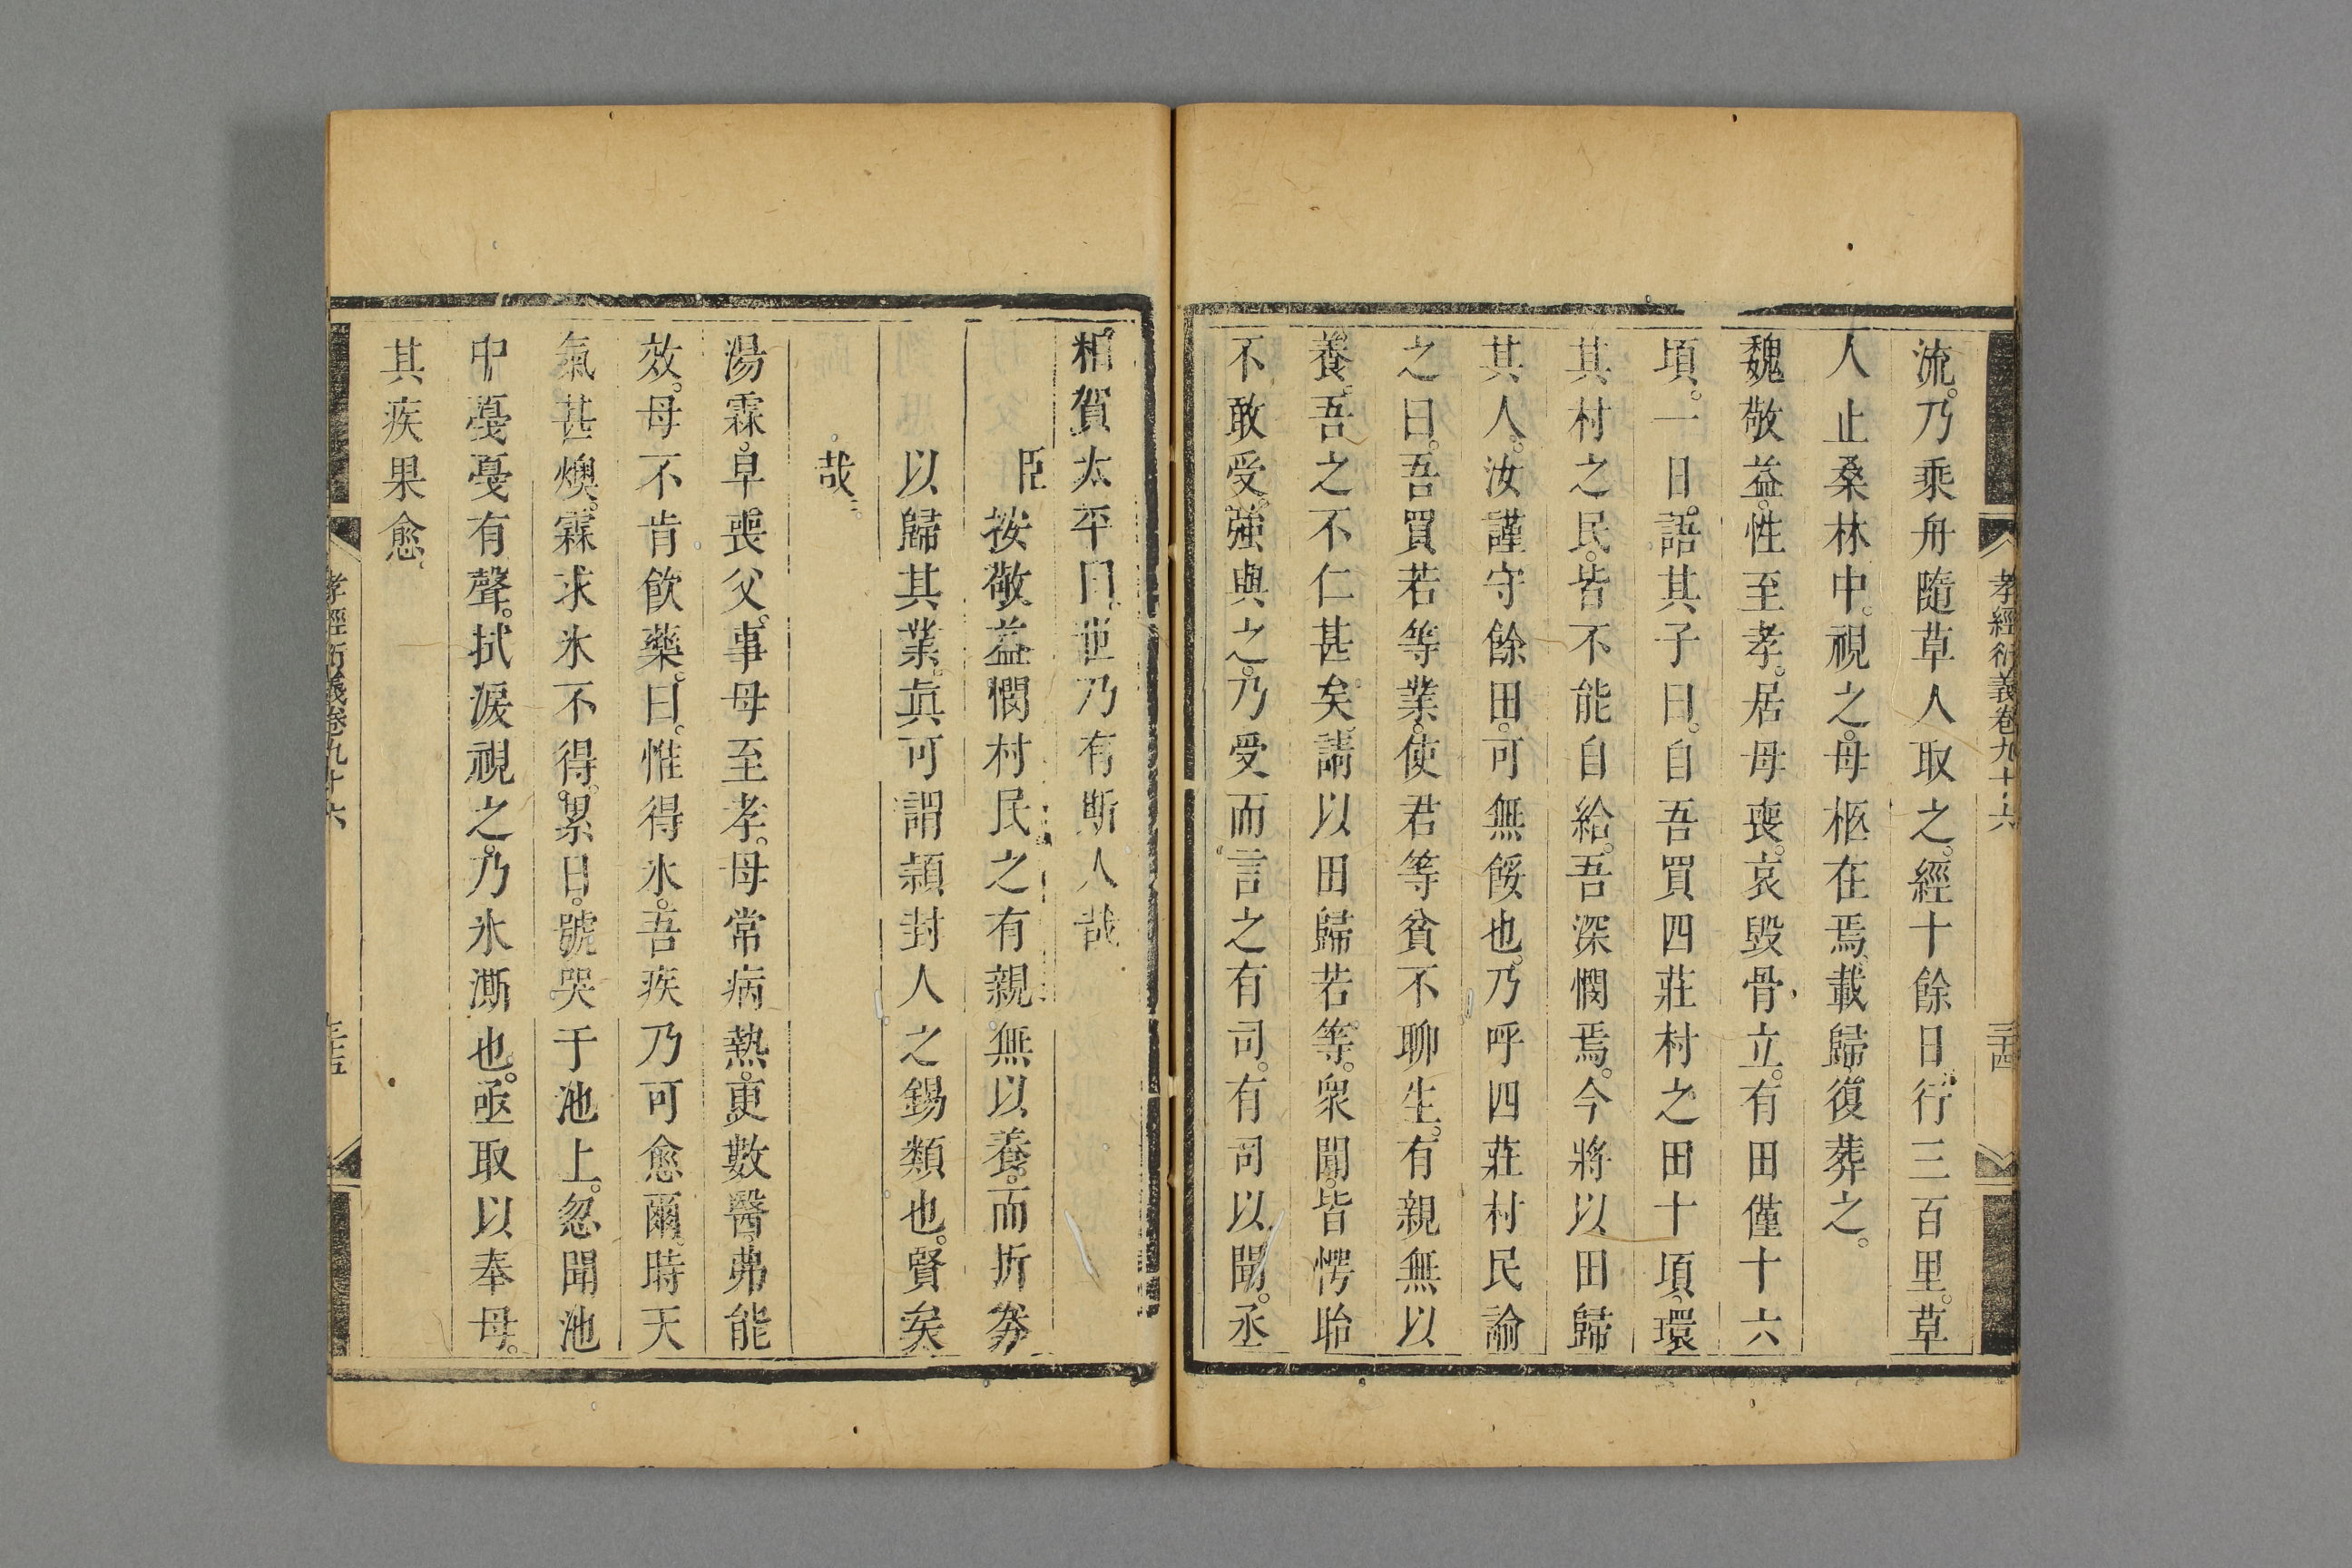 孝經衍義卷九十六
三十四
流。乃乘舟隨草人取之。經十餘日行三百里。草
人止桑林中。視之。母柩在焉。載歸復葬之。
魏敬益。性至孝。居母喪。哀毀骨立。有田僅十六
頃。一日。語其子曰。自吾買四莊村之田十頃。環
其村之民。皆不能自給。吾深憫焉。今將以田歸
其人。汝謹守餘田。可無餒也。乃呼四莊村民諭
之曰。吾買若等業。使君等貧不聊生。有親無以
養。吾之不仁甚矣。請以田歸若等。衆聞。皆愕眙
不敢受。強與之。乃受而言之有司。有司以聞。丞
相賀太平曰。世乃有斯人哉
臣按敬益憫村民之有親。無以養。而折券
以歸其業。真可謂潁封人之錫類也。賢矣
哉。
湯霖。早喪父。事母至孝。母常病熱。更數醫。弗能
效。母不肯飲藥。曰。惟得氷。吾疾乃可愈爾。時天
氣甚燠。霖求氷不得。累日。號哭于池上。忽聞池
中戞戞有聲。拭淚視之。乃氷澌也。亟取以奉母。
其疾果愈。
孝經衍義卷九十六
三十五